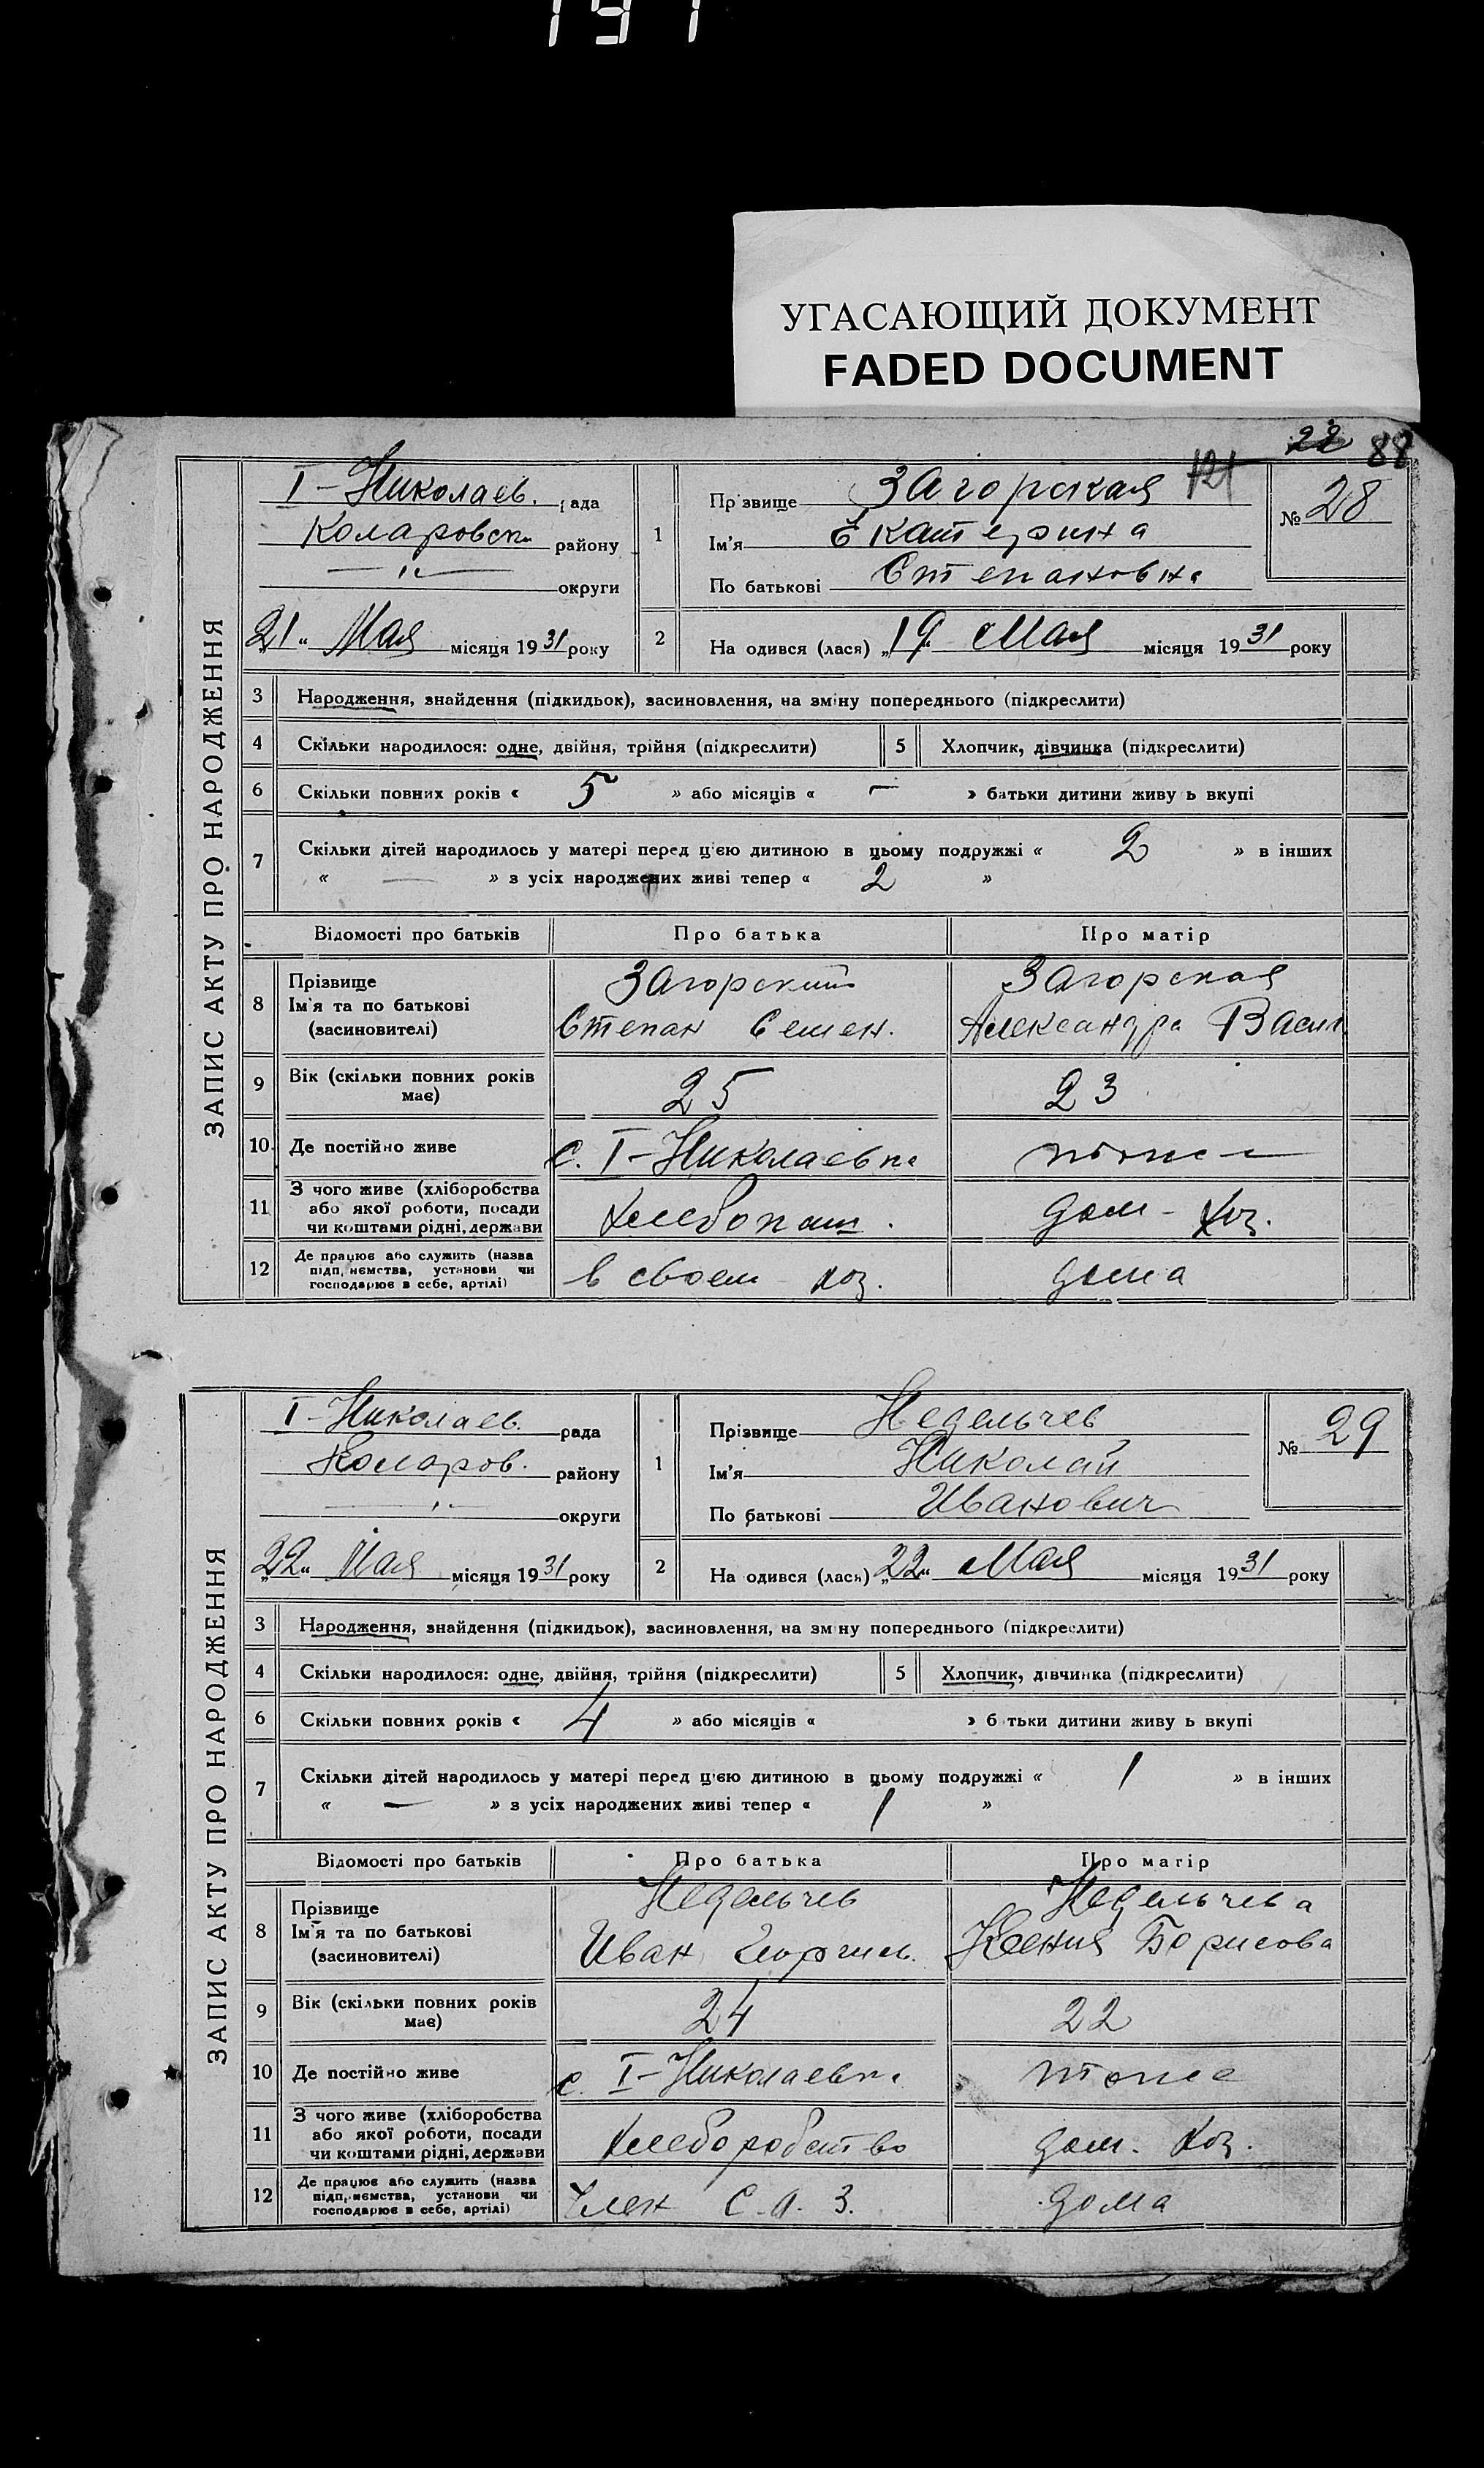 197
УГАСАЮЩИЙ ДОКУМЕНТ
FADED DOCUMENT
22 88
121
ЗАПИС АКТУ ПРО НАРОДЖЕННЯ
I-Николаев. рада
Коларовск. району
—"— округи
„21" Мая місяця 1931 року
1 Прізвище Загорская
Ім'я Екатерина
По батькові Степановна
№ 28
2 На одився (лася) „19" Мая місяця 1931 року
3 Народження, знайдення (підкидьок), засиновлення, на зміну попереднього (підкреслити)
4 Скільки народилося: одне, двійня, трійня (підкреслити) 5 Хлопчик, дівчинка (підкреслити)
6 Скільки повних років « 5 » або місяців « — » батьки дитини живу ь вкупі
7 Скільки дітей народилось у матері перед цією дитиною в цьому подружжі « 2 » в інших
« — » з усіх народжених живі тепер « 2 »
Відомості про батьків Про батька Про матір
8 Прізвище Загорский Загорская
Ім'я та по батькові Степан Семен. Александра Васил.
(засиновителі)
9 Вік (скільки повних років має) 25 23
10 Де постійно живе с. I-Николаевка тоже
11 З чого живе (хліборобства
або якої роботи, посади Хлебопаш. дом-хоз.
чи коштами рідні, держави
12 Де працює або служить (назва
підп, нємства, установи чи в своем хоз. дома
господарює в себе, артілі)
ЗАПИС АКТУ ПРО НАРОДЖЕННЯ
I-Николаев. рада
Коларов. району
—"— округи
„22" Мая місяця 1931 року
1 Прізвище Недельчев
Ім'я Николай
По батькові Иванович
№ 29
2 На одився (лася) „22" Мая місяця 1931 року
3 Народження, знайдення (підкидьок), засиновлення, на зм ну попереднього (підкреслити)
4 Скільки народилося: одне, двійня, трійня (підкреслити) 5 Хлопчик, дівчинка (підкреслити)
6 Скільки повних років « 4 » або місяців « » б тьки дитини живу ь вкупі
7 Скільки дітей народилось у матері перед цією дитиною в цьому подружжі « 1 » в інших
« — » з усіх народжених живі тепер « 1 »
Відомості про батьків Про батька Про матір
8 Прізвище Недельчев Недельчева
Ім'я та по батькові Иван Георгиев. Ксения Борисова
(засиновителі)
9 Вік (скільки повних років має) 24 22
10 Де постійно живе с. I-Николаевка тоже
11 З чого живе (хліборобства
або якої роботи, посади хлеборобство дом. хоз.
чи коштами рідні, держави
12 Де працює або служить (назва
підпр, нємства, установи чи Член С. О. З. дома
господарює в себе, артілі)